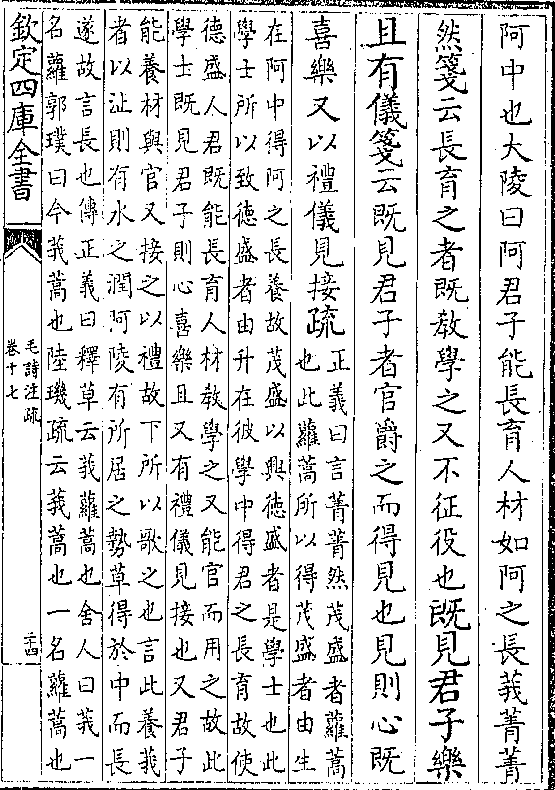 阿中也大陵曰阿君子能長育人材如阿之長莪菁菁
然箋云長育之者既教學之又不征役也既見君子樂
且有儀箋云既見君子者官爵之而得見也見則心既
喜樂又以禮儀見接疏
正義曰言菁菁然茂盛者蘿蒿
也此蘿蒿所以得茂盛者由生
在阿中得阿之長養故茂盛以興德盛者是學士也此
學士所以致德盛者由升在彼學中得君之長育故使
德盛人君既能長育人材教學之又能官而用之故此
學士既見君子則心喜樂且又有禮儀見接也又君子
能養材與官又接之以禮故下所以歌之也言此養莪
者以沚則有水之潤阿陵有所居之勢草得於中而長
遂故言長也傳正義曰釋草云莪蘿蒿也舍人曰莪一
名蘿郭璞曰今莪蒿也陸璣疏云莪蒿也一名蘿蒿也
欽定四庫全書
毛詩注疏
卷十七
二十四